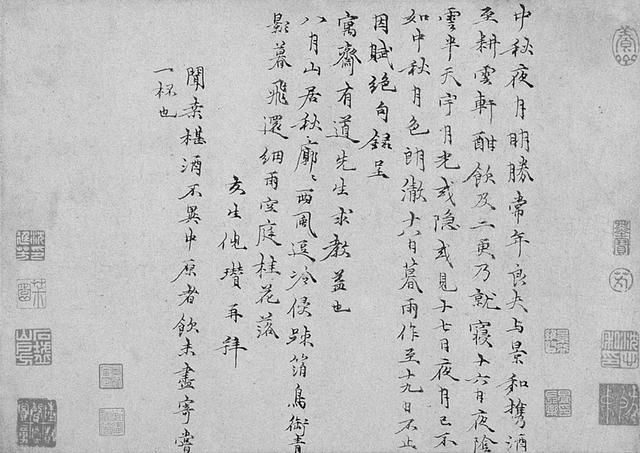 中秋夜月明勝常年良夫与景和攜酒
至耕雲軒酣飲及二更乃就寢十六日夜陰
雲半天宇月光或隐或見十七日夜月已不
如中秋月色朗澈十八日暮雨作至十九日不止
因賦絕句録呈
寓齋有道先生求教益也
八月山居秋廓〻西風逗冷侵踈箔鳥銜青
影暮飛還細雨空庭桂花落
友生倪瓚再拜
聞桒椹酒不異中原者飲未盡寄嘗
一杯也